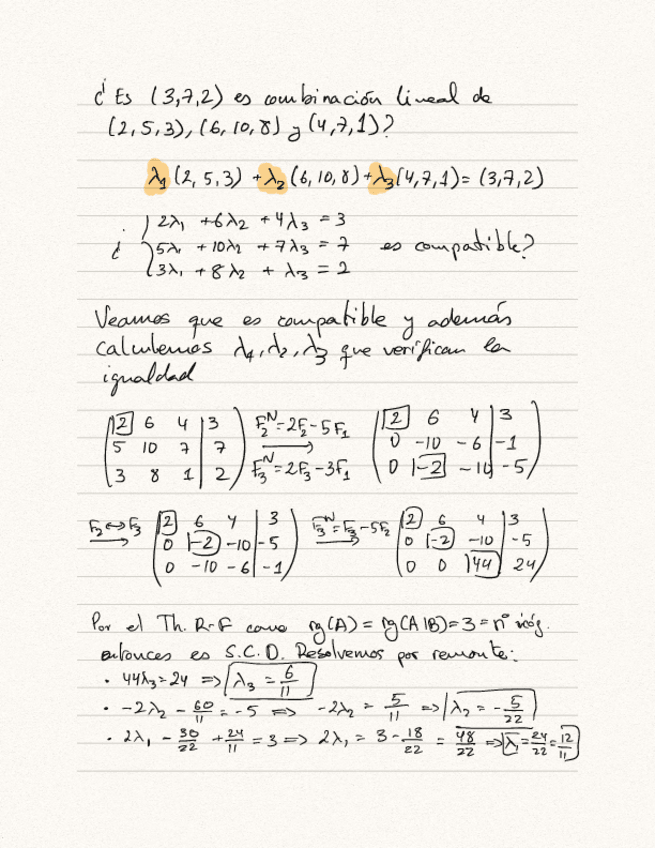 ¿Es (3,7,2) es combinación lineal de
(2,5,3), (6,10,8) y (4,7,1)?
λ₁(2,5,3) + λ₂(6,10,8) + λ₃(4,7,1) = (3,7,2)
2λ₁ + 6λ₂ + 4λ₃ = 3
¿ 5λ₁ + 10λ₂ + 7λ₃ = 7 es compatible?
3λ₁ + 8λ₂ + λ₃ = 2
Veamos que es compatible y además
calculemos λ₁, λ₂, λ₃ que verifican la
igualdad
2 6 4 | 3 F₂ᴺ=2F₂-5F₁ 2 6 4 | 3
5 10 7 | 7 → 0 -10 -6 | -1
3 8 1 | 2 F₃ᴺ=2F₃-3F₁ 0 -2 -10 | -5
F₂↔F₃ 2 6 4 | 3 F₃ᴺ=F₃-5F₂ 2 6 4 | 3
→ 0 -2 -10 | -5 → 0 -2 -10 | -5
0 -10 -6 | -1 0 0 44 | 24
Por el Th. R-F como rg(A) = rg(A|B) = 3 = nº incóg.
entonces es S.C.D. Resolvemos por remonte:
· 44λ₃ = 24 ⇒ λ₃ = 6/11
· -2λ₂ - 60/11 = -5 ⇒ -2λ₂ = 5/11 ⇒ λ₂ = -5/22
· 2λ₁ - 30/22 + 24/11 = 3 ⇒ 2λ₁ = 3 - 18/22 = 48/22 ⇒ λ₁ = 24/22 = 12/11